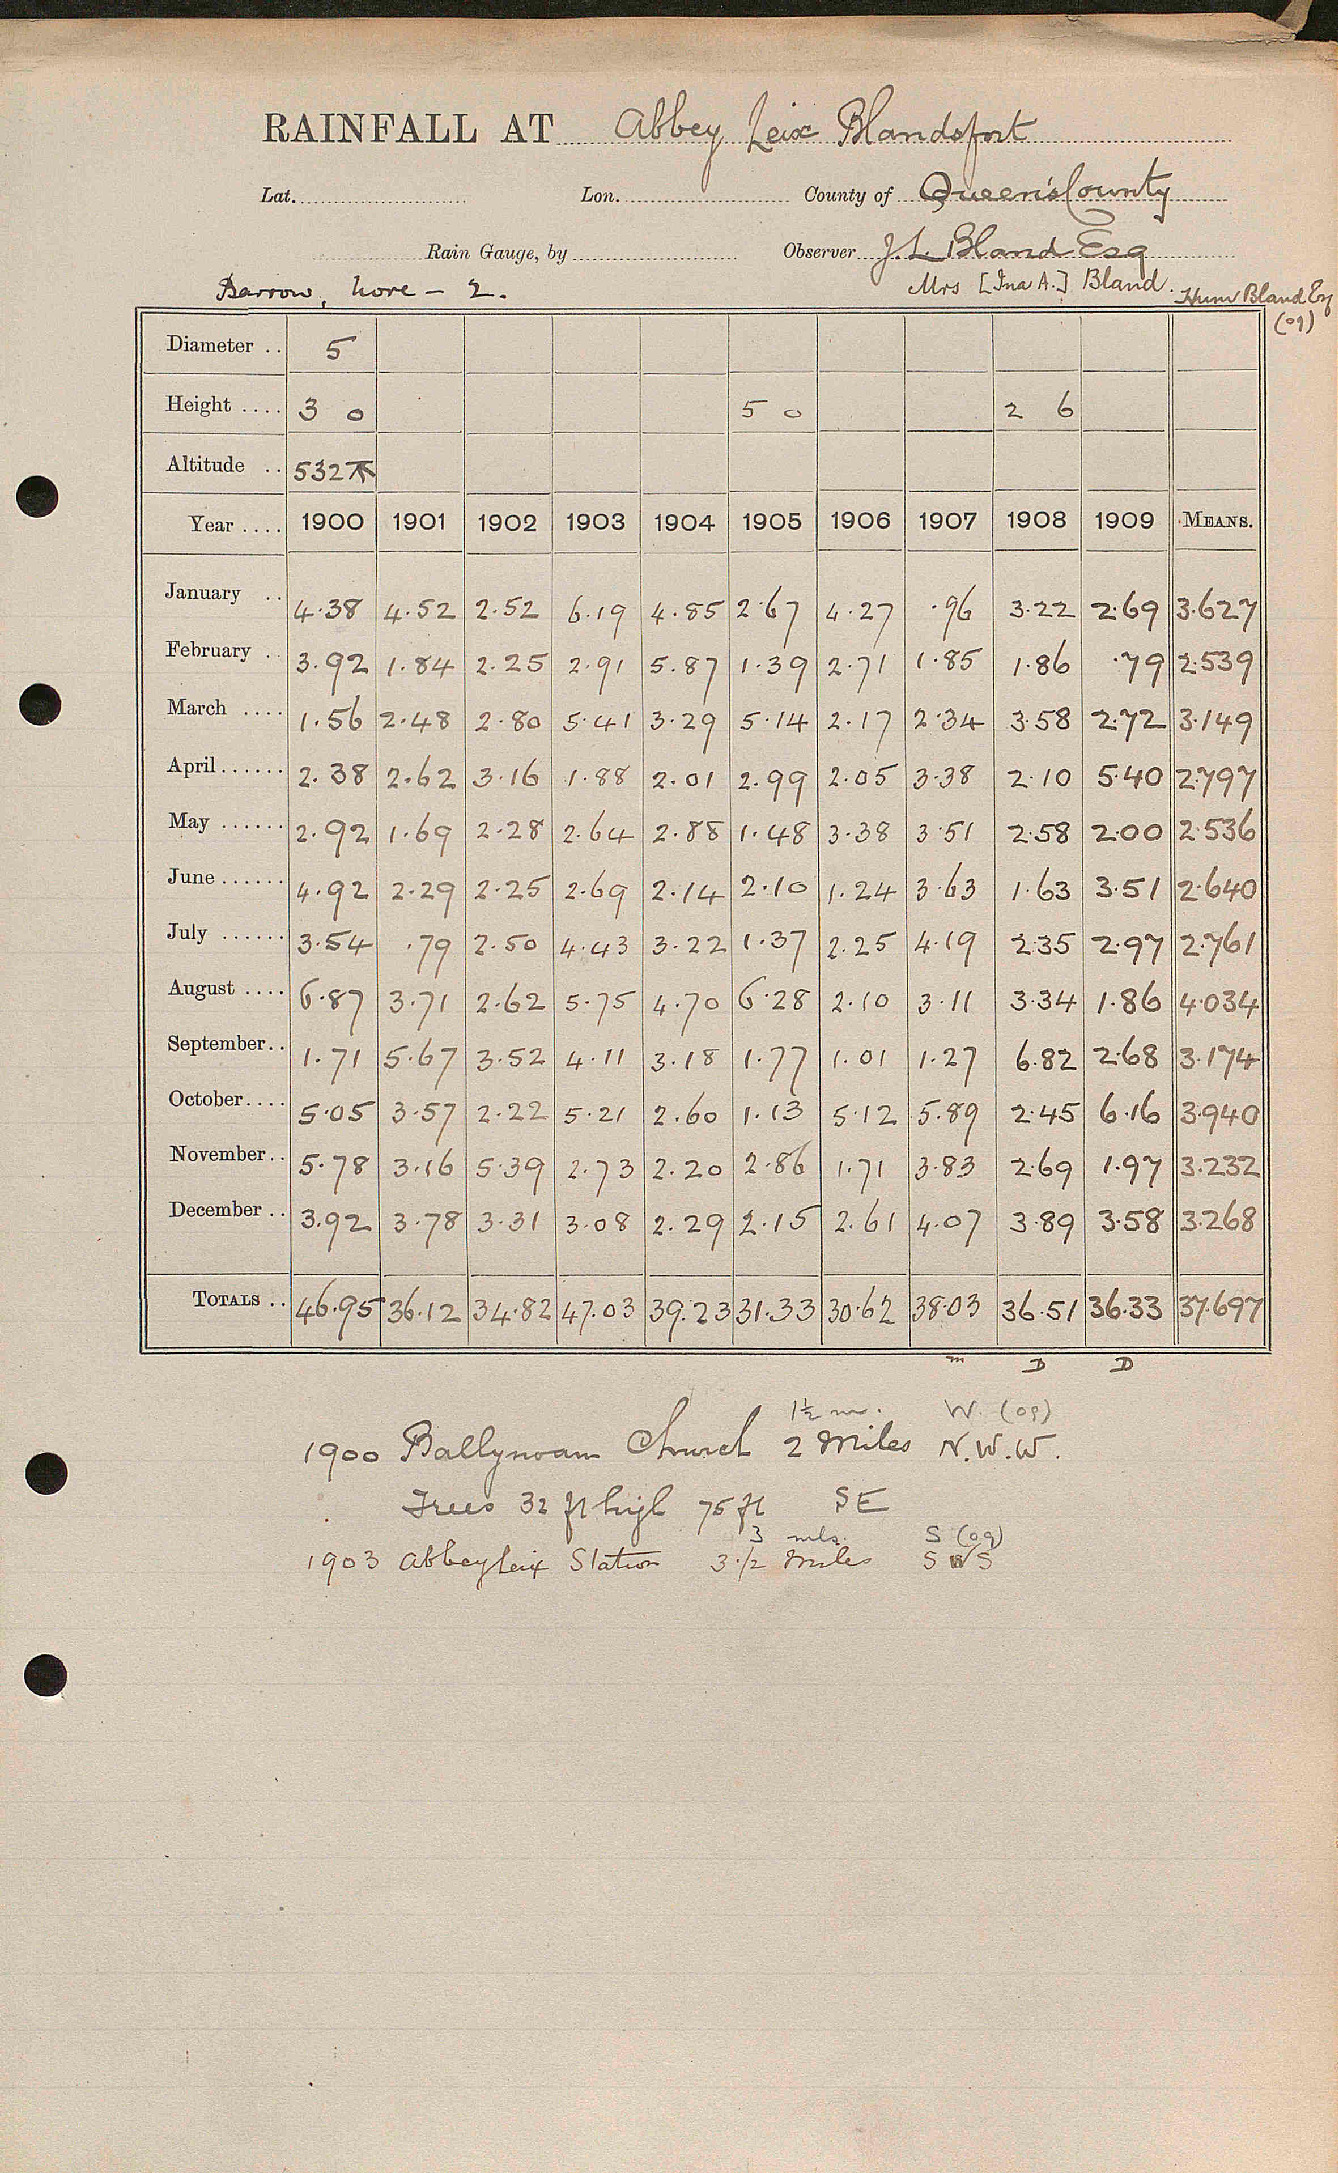 RAINFALL AT Abbey Leix Blandsfort
Lat. Lon. County of Queen's County
Rain Gauge, by Observer J. L. Bland Esq
Barrow, Nore - 2. Mrs [Ina A.] Bland. Hum Bland Esq
(09)
Diameter .. 5
Height .... 3 0 5 0 2 6
Altitude .. 532
Year .... 1900 1901 1902 1903 1904 1905 1906 1907 1908 1909 MEANS.
January .. 4.38 4.52 2.52 6.19 4.85 2.67 4.27 .96 3.22 2.69 3.627
February .. 3.92 1.84 2.25 2.91 5.87 1.39 2.71 1.85 1.86 .79 2.539
March .... 1.56 2.48 2.80 5.41 3.29 5.14 2.17 2.34 3.58 2.72 3.149
April...... 2.38 2.62 3.16 1.88 2.01 2.99 2.05 3.38 2.10 5.40 2.797
May ...... 2.92 1.69 2.28 2.64 2.88 1.48 3.38 3.51 2.58 2.00 2.536
June...... 4.92 2.29 2.25 2.69 2.14 2.10 1.24 3.63 1.63 3.51 2.640
July ...... 3.54 .79 2.50 4.43 3.22 1.37 2.25 4.19 2.35 2.97 2.761
August .... 6.87 3.71 2.62 5.75 4.70 6.28 2.10 3.11 3.34 1.86 4.034
September.. 1.71 5.67 3.52 4.11 3.18 1.77 1.01 1.27 6.82 2.68 3.174
October.... 5.05 3.57 2.22 5.21 2.60 1.13 5.12 5.89 2.45 6.16 3.940
November.. 5.78 3.16 5.39 2.73 2.20 2.86 1.71 3.83 2.69 1.97 3.232
December .. 3.92 3.78 3.31 3.08 2.29 2.15 2.61 4.07 3.89 3.58 3.268
TOTALS .. 46.95 36.12 34.82 47.03 39.23 31.33 30.62 38.03 36.51 36.33 37.697
m D D
1½ m. W. (09)
1900 Ballynoam Church 2 Miles N.W.W.
Trees 32 ft high 75 ft SE
3 mls. S (09)
1903 Abbeyleix Station 3 1/2 Miles S W S